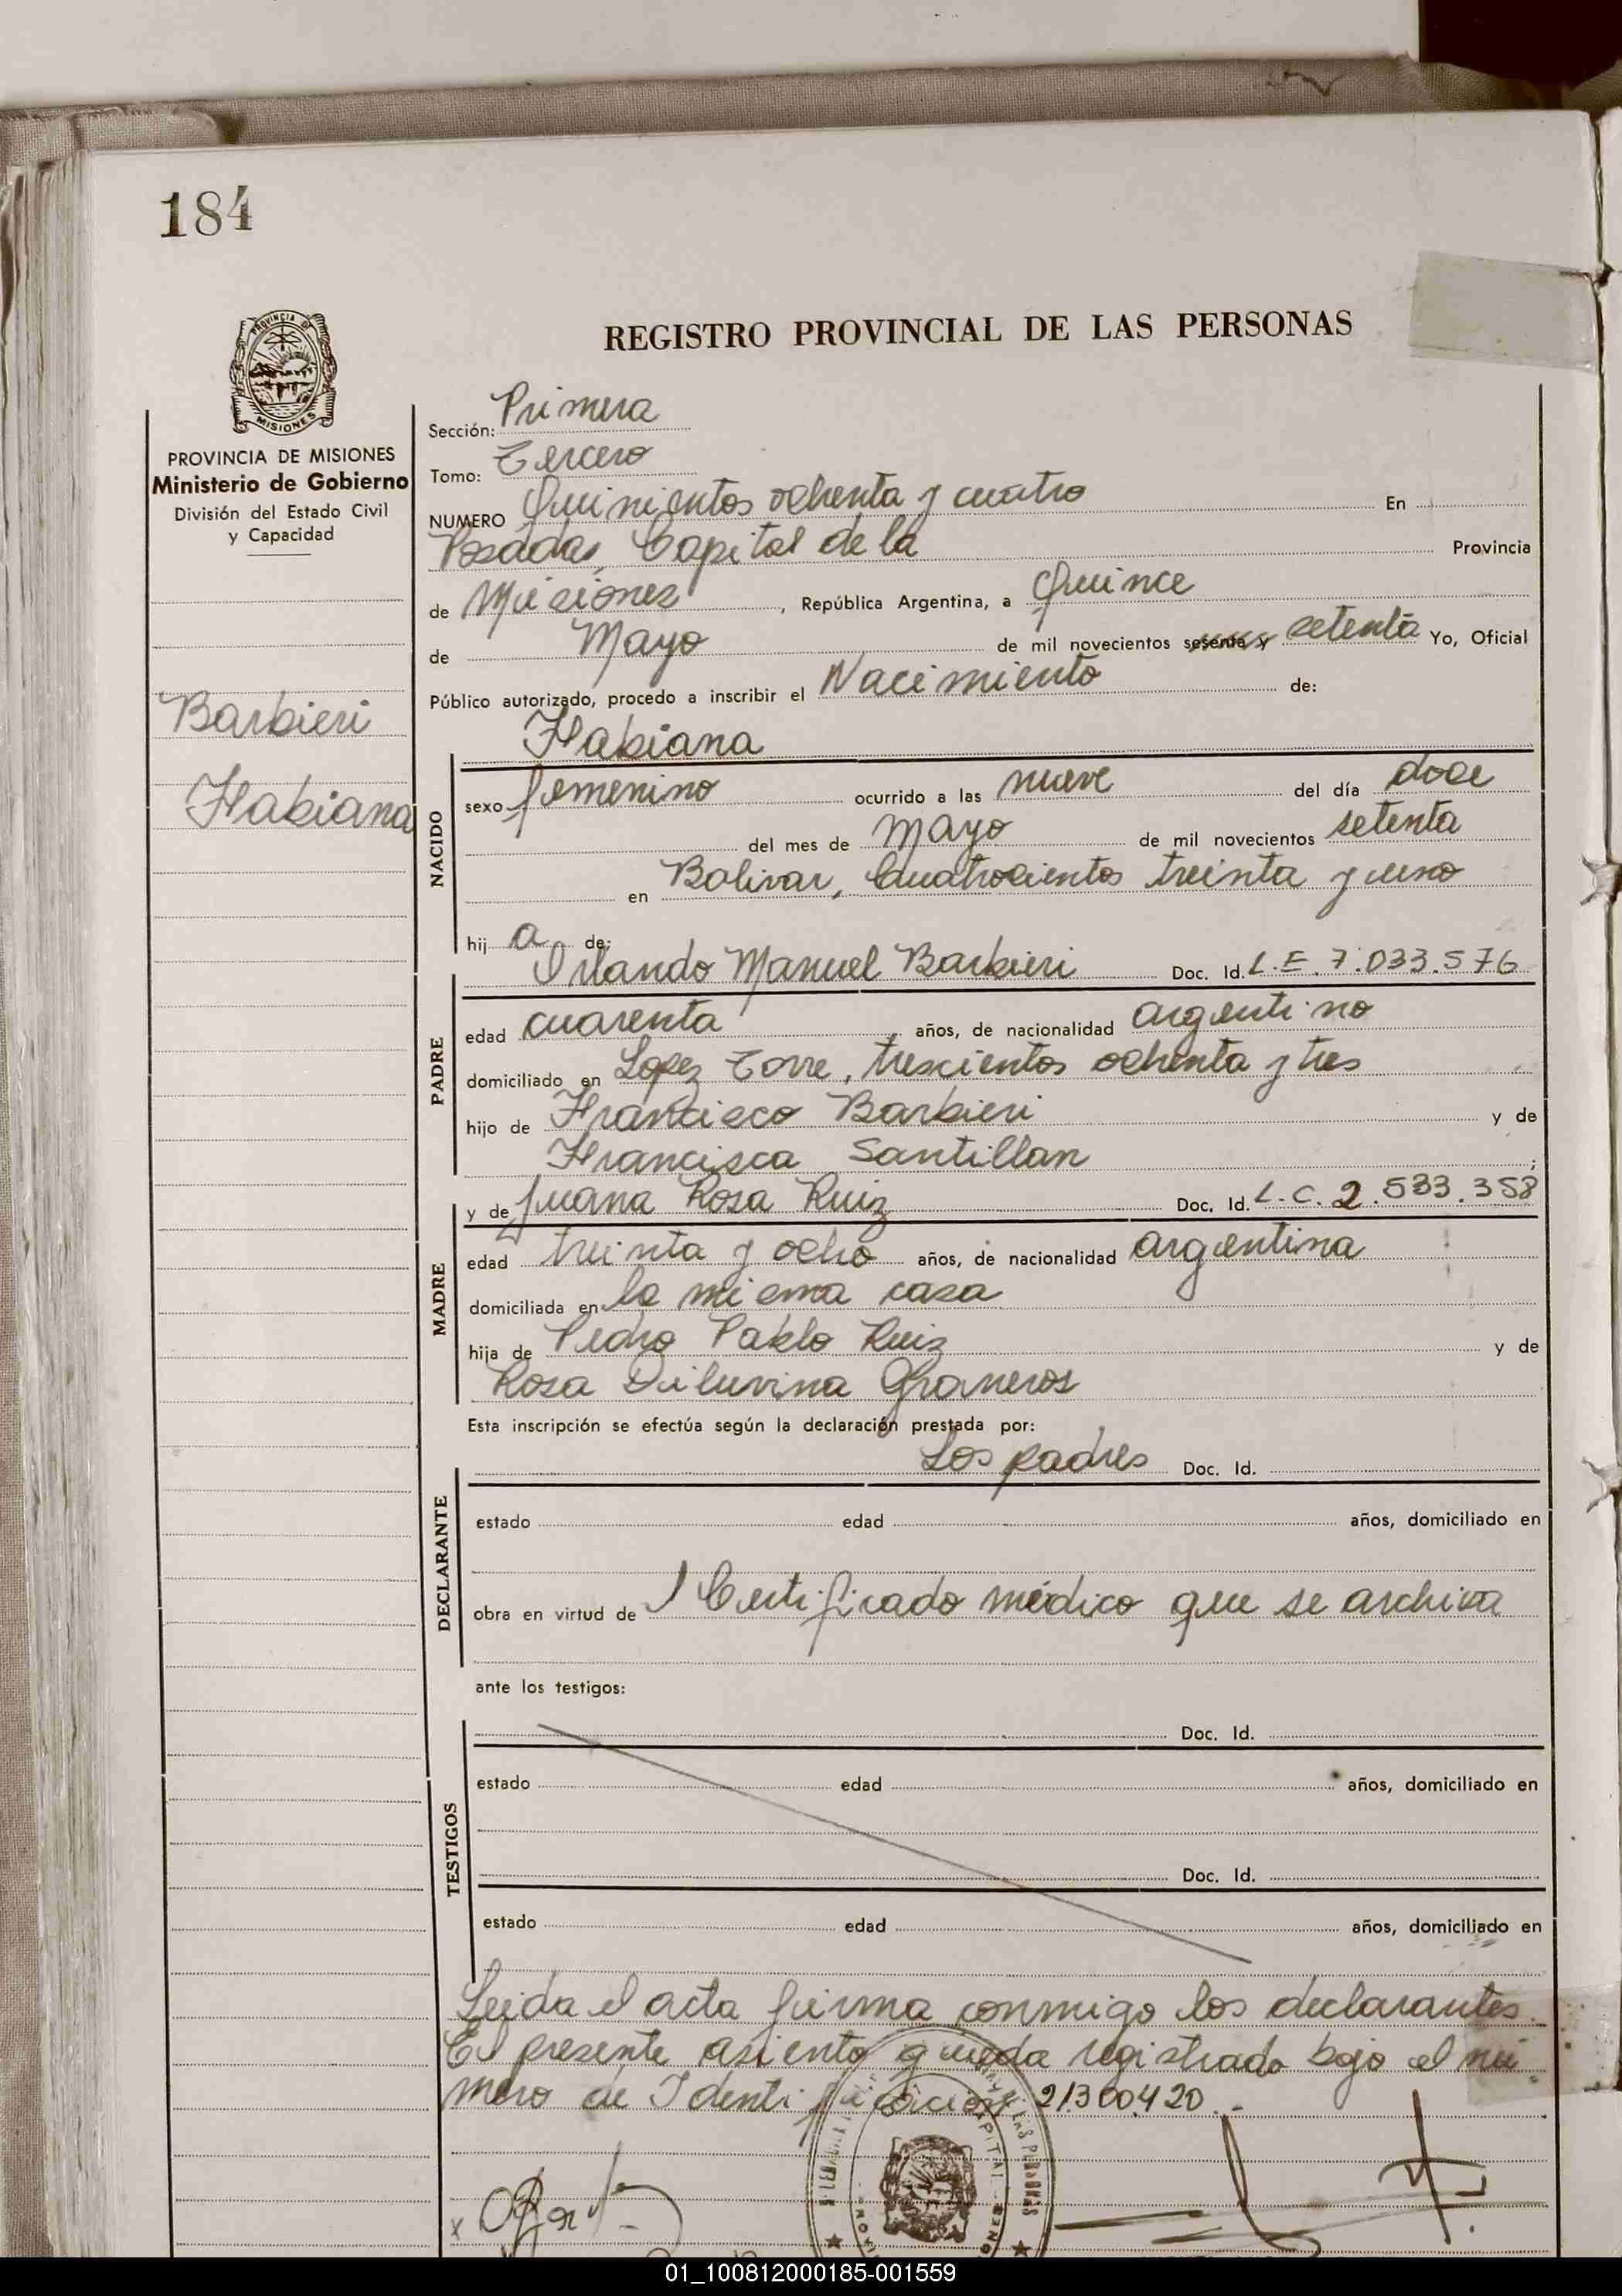 184
PROVINCIA DE
MISIONES
REGISTRO PROVINCIAL DE LAS PERSONAS
PROVINCIA DE MISIONES
Ministerio de Gobierno
División del Estado Civil
y Capacidad
Barbieri
Fabiana
Sección: Primera
Tomo: Tercero
NUMERO Quinientos ochenta y cuatro En
Posadas, Capital de la Provincia
de Misiones, República Argentina, a Quince
de Mayo de mil novecientos sesenta y setenta Yo, Oficial
Público autorizado, procedo a inscribir el Nacimiento de:
Fabiana
NACIDO
sexo femenino ocurrido a las nueve del día doce
del mes de Mayo de mil novecientos setenta
en Bolivar, Cuatrocientos treinta y uno
hij a de:
Orlando Manuel Barbieri Doc. Id. L.E. 7.033.576
PADRE
edad cuarenta años, de nacionalidad argentino
domiciliado en Lopez Torre, trescientos ochenta y tres
hijo de Francisco Barbieri y de
Francisca Santillan ;
y de Juana Rosa Ruiz Doc. Id. L.C. 2.533.358
MADRE
edad treinta y ocho años, de nacionalidad argentina
domiciliada en la misma casa
hija de Pedro Pablo Ruiz y de
Rosa Diluvina Graneros
Esta inscripción se efectúa según la declaración prestada por:
Los padres Doc. Id.
DECLARANTE
estado edad años, domiciliado en
obra en virtud de Certificado médico que se archiva
ante los testigos:
Doc. Id.
TESTIGOS
estado edad años, domiciliado en
Doc. Id.
estado edad años, domiciliado en
Leida el acta firma conmigo los declarantes.
El presente asiento queda registrado bajo el nú
mero de Identificación 21300420.-
01_100812000185-001559